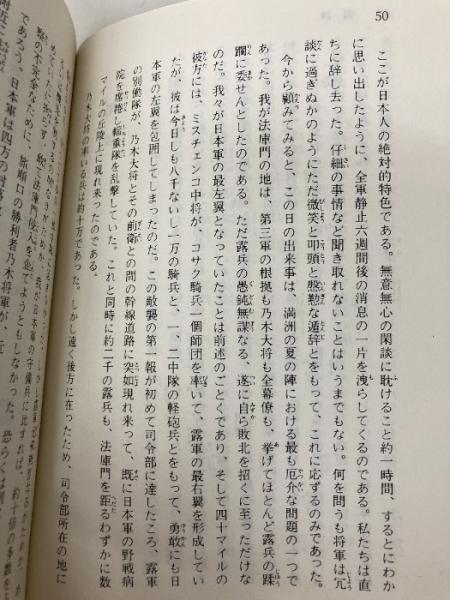 50
ここが日本人の絶対的特色である。無意無心の閑談に耽けること約一時間、するとにわか
に思い出したように、全軍静止六週間後の消息の一片を洩らしてくるのである。私たちは直
ちに辞し去った。仔細の事情など聞き取れないことはいうまでもない。何を問うも将軍は冗
談に過ぎぬかのようにただ微笑と叩頭と慇懃な遁辞とをもって、これに応ずるのみであった。
今から顧みてみると、この日の出来事は、満洲の夏の陣における最も厄介な問題の一つで
あった。我が法庫門の地は、第三軍の根拠も乃木大将も全幕僚も、挙げてほとんど露兵の蹂
躙に委せんとしたのである。ただ露兵の愚鈍無謀なる、遂に自ら敗北を招くに至っただけな
のだ。我々が日本軍の最左翼となっていたことは前述のごとくであり、そして四十マイルの
彼方には、ミスチェンコ中将が、コサク騎兵一個師団を率いて、露軍の最右翼を形成してい
たが、彼は今日しも八千ないし一万の騎兵と、一、二中隊の軽砲兵とをもって、勇敢にも日
本軍の左翼を包囲してしまったのだ。この敵襲の第一報が初めて司令部に達したころ、露軍
の別働隊が、乃木大将とその前衛との間の幹線道路に突如現れ来って、既に日本軍の野戦病
院を席捲し輜重隊を乱撃していた。これと同時に約二千の露兵も、法庫門を距るわずかに数
マイルの丘陵上に現れ来ったのである。
乃木大将の率いる兵は約十万であった。しかし遠く後方に在ったため、司令部所在の地に